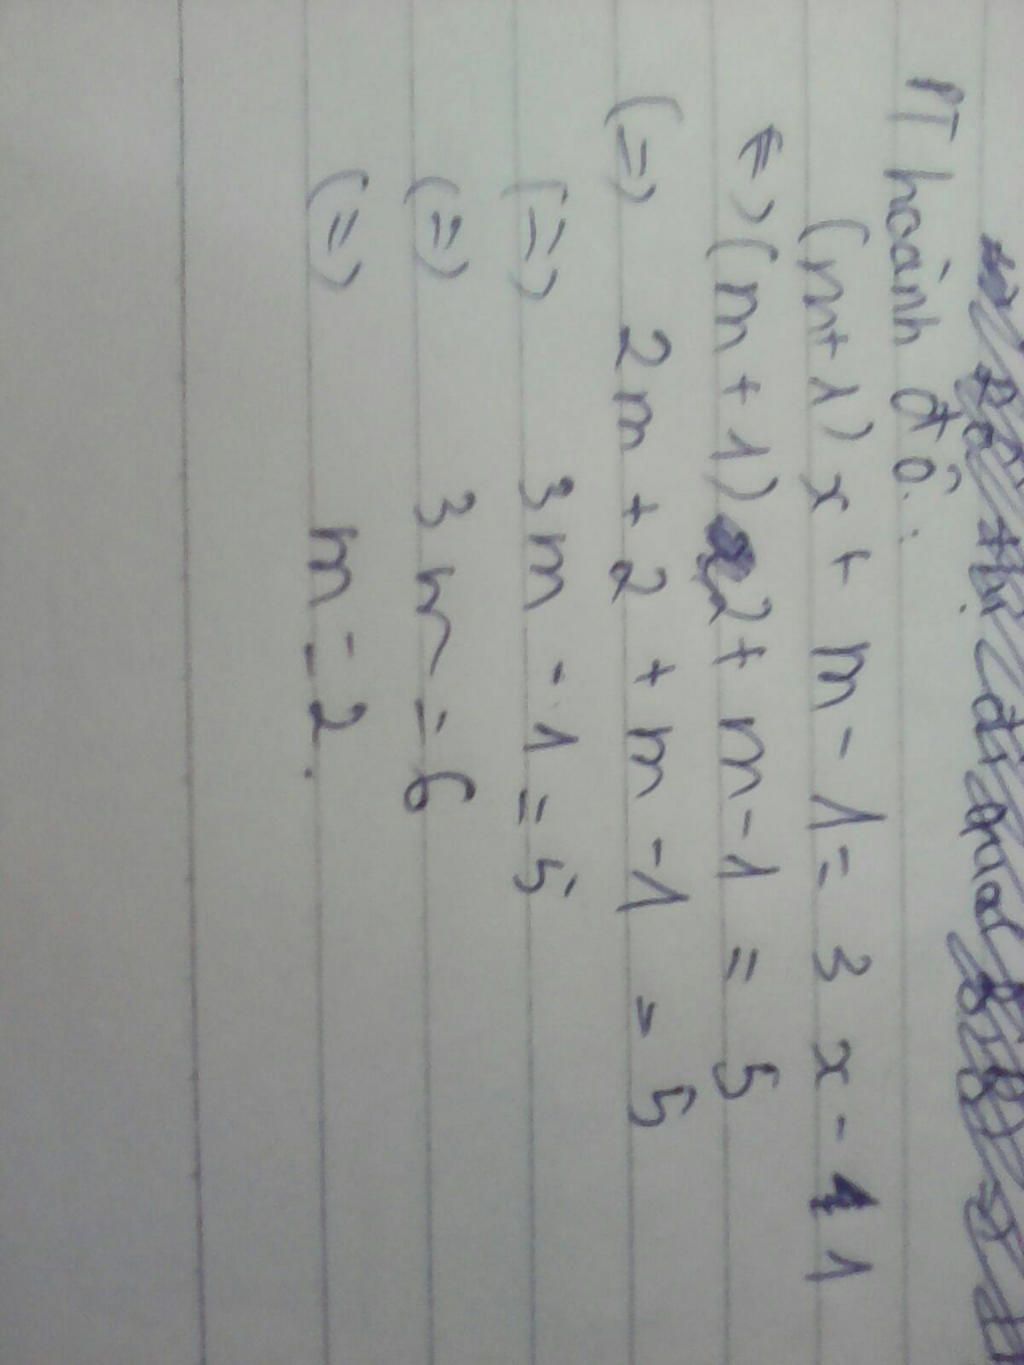 PT hoành độ:
(m+1)x + m - 1 = 3x - 1
<=> (m+1)2 + m - 1 = 5
(=) 2m + 2 + m - 1 = 5
(=) 3m - 1 = 5
(=) 3m = 6
(=) m = 2.